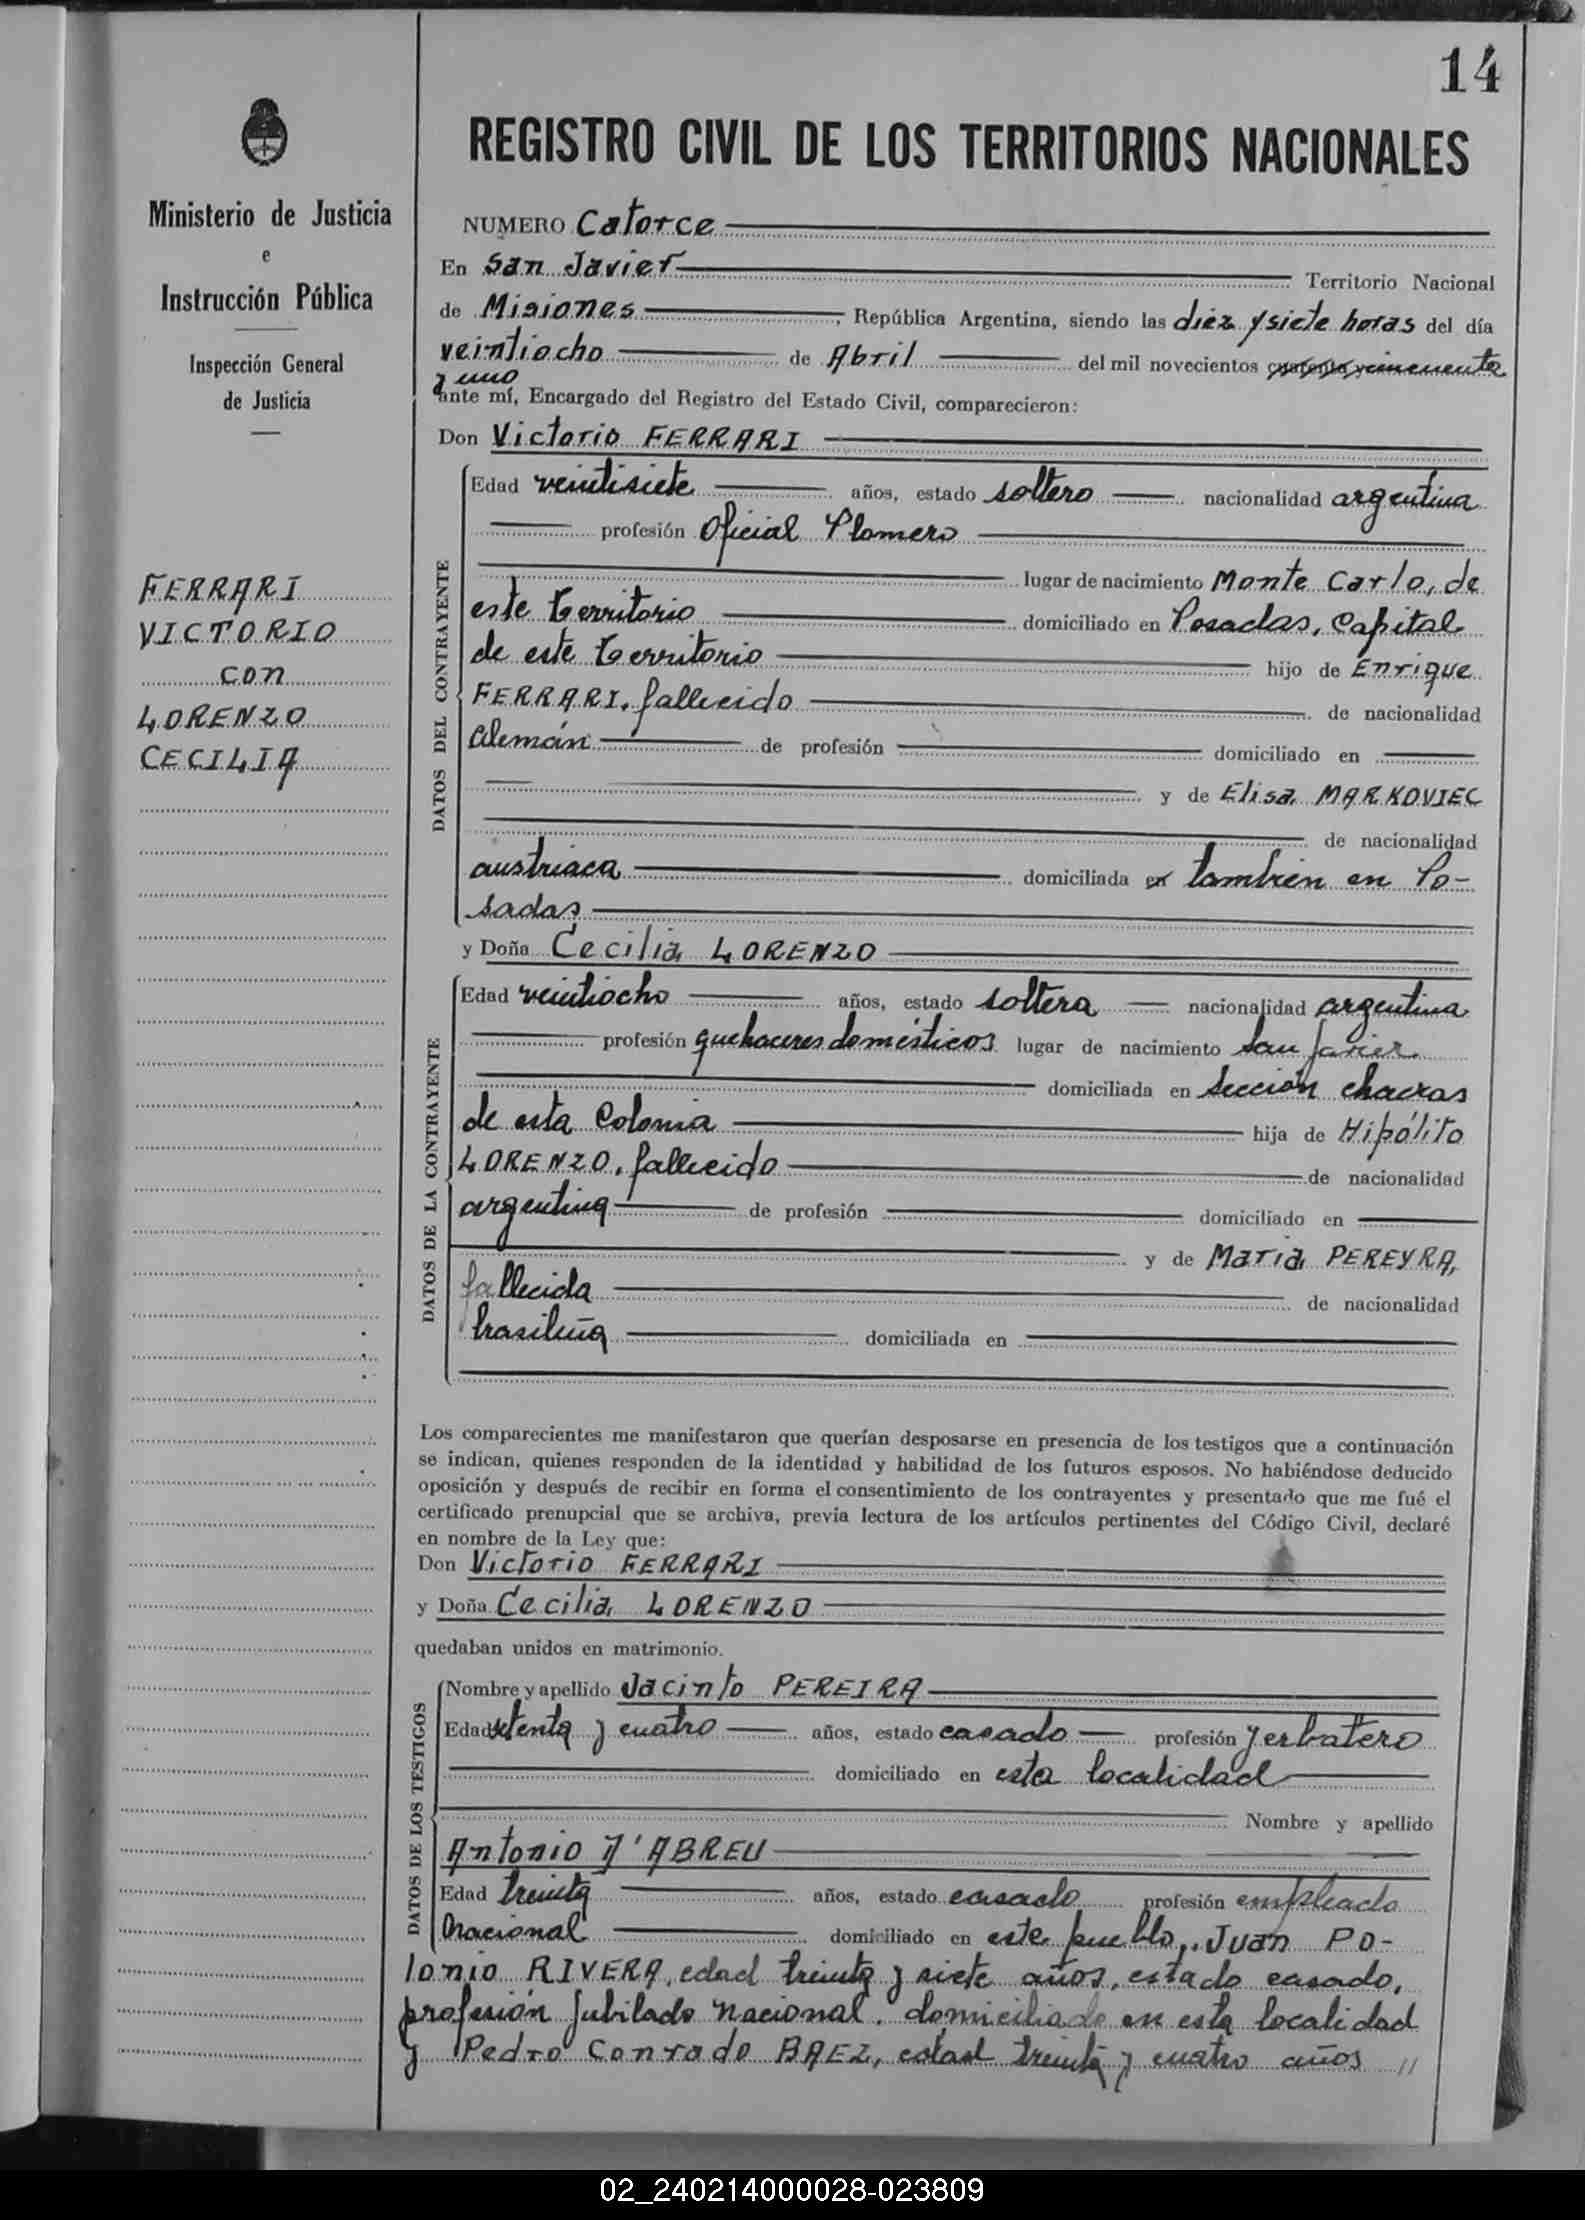 14
REGISTRO CIVIL DE LOS TERRITORIOS NACIONALES
Ministerio de Justicia
e
Instrucción Pública
Inspección General
de Justicia
FERRARI
VICTORIO
con
LORENZO
CECILIA
NUMERO Catorce
En San Javier Territorio Nacional
de Misiones, República Argentina, siendo las diez y siete horas del día
veintiocho de Abril del mil novecientos cuarenta y cincuenta
y uno
ante mí, Encargado del Registro del Estado Civil, comparecieron:
Don Victorio FERRARI
DATOS DEL CONTRAYENTE
Edad veintisiete años, estado soltero nacionalidad argentina
profesión Oficial Plomero
lugar de nacimiento Monte Carlo, de
este territorio domiciliado en Posadas, Capital
de este territorio hijo de Enrique
FERRARI, fallecido de nacionalidad
alemán de profesión domiciliado en
y de Elisa MARKOVIEC
de nacionalidad
austriaca domiciliada en también en Po-
sadas
y Doña Cecilia LORENZO
DATOS DE LA CONTRAYENTE
Edad veintiocho años, estado soltera nacionalidad argentina
profesión quehaceres domésticos lugar de nacimiento San Javier
domiciliada en sección chacras
de esta Colonia hija de Hipólito
LORENZO, fallecido de nacionalidad
argentina de profesión domiciliado en
y de Maria PEREYRA,
fallecida de nacionalidad
brasileña domiciliada en
Los comparecientes me manifestaron que querían desposarse en presencia de los testigos que a continuación
se indican, quienes responden de la identidad y habilidad de los futuros esposos. No habiéndose deducido
oposición y después de recibir en forma el consentimiento de los contrayentes y presentado que me fué el
certificado prenupcial que se archiva, previa lectura de los artículos pertinentes del Código Civil, declaré
en nombre de la Ley que:
Don Victorio FERRARI
y Doña Cecilia LORENZO
quedaban unidos en matrimonio.
DATOS DE LOS TESTIGOS
Nombre y apellido Jacinto PEREIRA
Edad setenta y cuatro años, estado casado profesión yerbatero
domiciliado en esta localidad
Nombre y apellido
Antonio D'ABREU
Edad treinta años, estado casado profesión empleado
Nacional domiciliado en este pueblo, Juan Po-
lonio RIVERA, edad treinta y siete años, estado casado,
profesión Jubilado Nacional, domiciliado en esta localidad
y Pedro Conrado BAEZ, edad treinta y cuatro años //
02_240214000028-023809